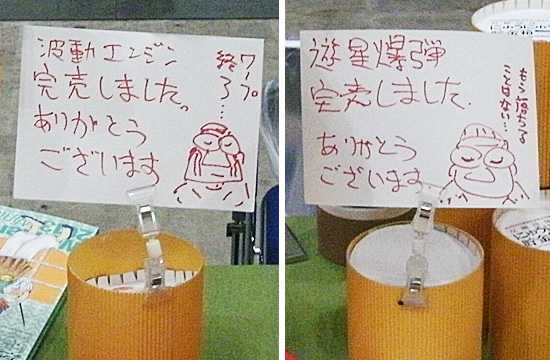 波動エンジン
完売しました。
ありがとう
ございます
ワープ
終了…
遊星爆弾
完売しました.
ありがとう
ございます
もう落ちる
ことはない…